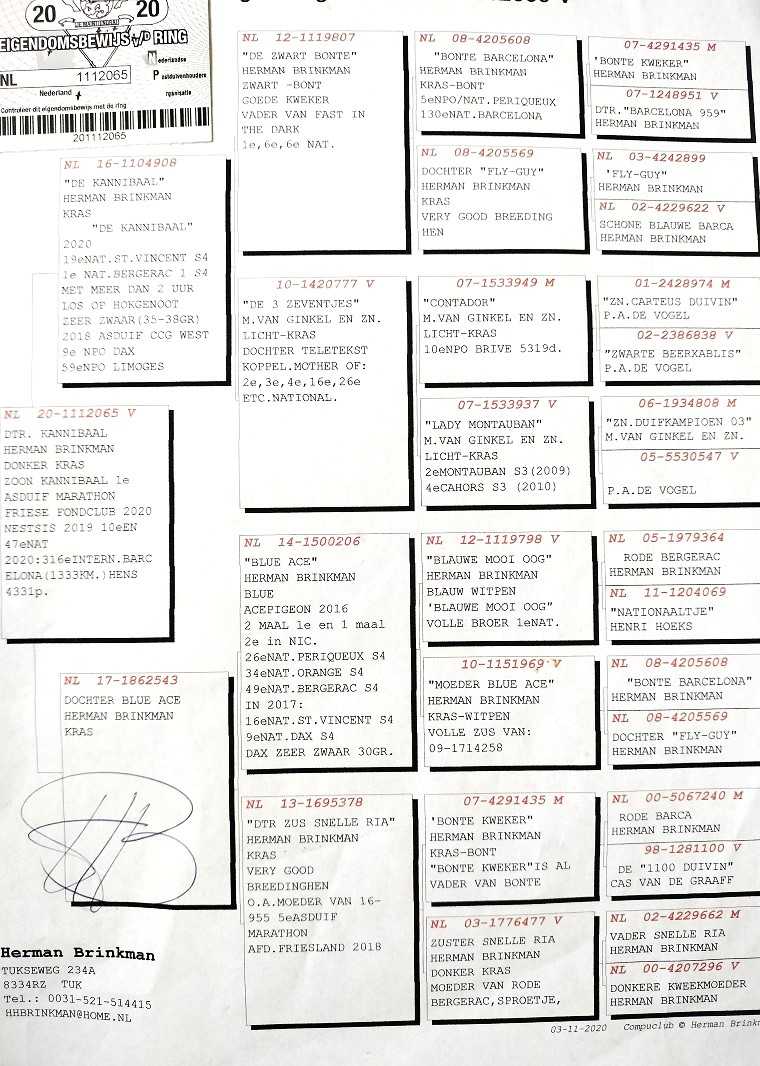 20 20
EIGENDOMSBEWIJS V/D RING
NL 1112065
Nederland
Nederlandse
Postduivenhouders
Organisatie
Controleer dit eigendomsbewijs met de ring
201112065
NL 20-1112065 V
DTR. KANNIBAAL
HERMAN BRINKMAN
DONKER KRAS
ZOON KANNIBAAL 1e
ASDUIF MARATHON
FRIESE FONDCLUB 2020
NESTSIS 2019 10eEN
47eNAT
2020:316eINTERN.BARC
ELONA(1333KM.)HENS
4331p.
NL 16-1104908
"DE KANNIBAAL"
HERMAN BRINKMAN
KRAS
"DE KANNIBAAL"
2020
19eNAT.ST.VINCENT S4
1e NAT.BERGERAC 1 S4
MET MEER DAN 2 UUR
LOS OP HOKGENOOT
ZEER ZWAAR(35-38GR)
2018 ASDUIF CCG WEST
9e NPO DAX
59eNPO LIMOGES
NL 17-1862543
DOCHTER BLUE ACE
HERMAN BRINKMAN
KRAS
NL 12-1119807
"DE ZWART BONTE"
HERMAN BRINKMAN
ZWART -BONT
GOEDE KWEKER
VADER VAN FAST IN
THE DARK
1e,6e,6e NAT.
10-1420777 V
"DE 3 ZEVENTJES"
M.VAN GINKEL EN ZN.
LICHT-KRAS
DOCHTER TELETEKST
KOPPEL.MOTHER OF:
2e,3e,4e,16e,26e
ETC.NATIONAL.
NL 14-1500206
"BLUE ACE"
HERMAN BRINKMAN
BLUE
ACEPIGEON 2016
2 MAAL 1e en 1 maal
2e in NIC.
26eNAT.PERIQUEUX S4
34eNAT.ORANGE S4
49eNAT.BERGERAC S4
IN 2017:
16eNAT.ST.VINCENT S4
9eNAT.DAX S4
DAX ZEER ZWAAR 30GR.
NL 13-1695378
"DTR ZUS SNELLE RIA"
HERMAN BRINKMAN
KRAS
VERY GOOD
BREEDINGHEN
O.A.MOEDER VAN 16-
955 5eASDUIF
MARATHON
AFD.FRIESLAND 2018
NL 08-4205608
"BONTE BARCELONA"
HERMAN BRINKMAN
KRAS-BONT
5eNPO/NAT.PERIQUEUX
130eNAT.BARCELONA
NL 08-4205569
DOCHTER "FLY-GUY"
HERMAN BRINKMAN
KRAS
VERY GOOD BREEDING
HEN
07-1533949 M
"CONTADOR"
M.VAN GINKEL EN ZN.
LICHT-KRAS
10eNPO BRIVE 5319d.
07-1533937 V
"LADY MONTAUBAN"
M.VAN GINKEL EN ZN.
LICHT-KRAS
2eMONTAUBAN S3(2009)
4eCAHORS S3 (2010)
NL 12-1119798 V
"BLAUWE MOOI OOG"
HERMAN BRINKMAN
BLAUW WITPEN
'BLAUWE MOOI OOG"
VOLLE BROER 1eNAT.
10-1151969 V
"MOEDER BLUE ACE"
HERMAN BRINKMAN
KRAS-WITPEN
VOLLE ZUS VAN:
09-1714258
07-4291435 M
'BONTE KWEKER"
HERMAN BRINKMAN
KRAS-BONT
"BONTE KWEKER"IS AL
VADER VAN BONTE
NL 03-1776477 V
ZUSTER SNELLE RIA
HERMAN BRINKMAN
DONKER KRAS
MOEDER VAN RODE
BERGERAC,SPROETJE,
07-4291435 M
'BONTE KWEKER"
HERMAN BRINKMAN
07-1248951 V
DTR."BARCELONA 959"
HERMAN BRINKMAN
NL 03-4242899
'FLY-GUY"
HERMAN BRINKMAN
NL 02-4229622 V
SCHONE BLAUWE BARCA
HERMAN BRINKMAN
01-2428974 M
"ZN.CARTEUS DUIVIN"
P.A.DE VOGEL
02-2386838 V
"ZWARTE BEERXABLIS"
P.A.DE VOGEL
06-1934808 M
"ZN.DUIFKAMPIOEN 03"
M.VAN GINKEL EN ZN.
05-5530547 V
P.A.DE VOGEL
NL 05-1979364
RODE BERGERAC
HERMAN BRINKMAN
NL 11-1204069
"NATIONAALTJE"
HENRI HOEKS
NL 08-4205608
"BONTE BARCELONA"
HERMAN BRINKMAN
NL 08-4205569
DOCHTER "FLY-GUY"
HERMAN BRINKMAN
NL 00-5067240 M
RODE BARCA
HERMAN BRINKMAN
98-1281100 V
DE "1100 DUIVIN"
CAS VAN DE GRAAFF
NL 02-4229662 M
VADER SNELLE RIA
HERMAN BRINKMAN
NL 00-4207296 V
DONKERE KWEEKMOEDER
HERMAN BRINKMAN
Herman Brinkman
TUKSEWEG 234A
8334RZ TUK
Tel.: 0031-521-514415
HHBRINKMAN@HOME.NL
03-11-2020 Compuclub © Herman Brinkm